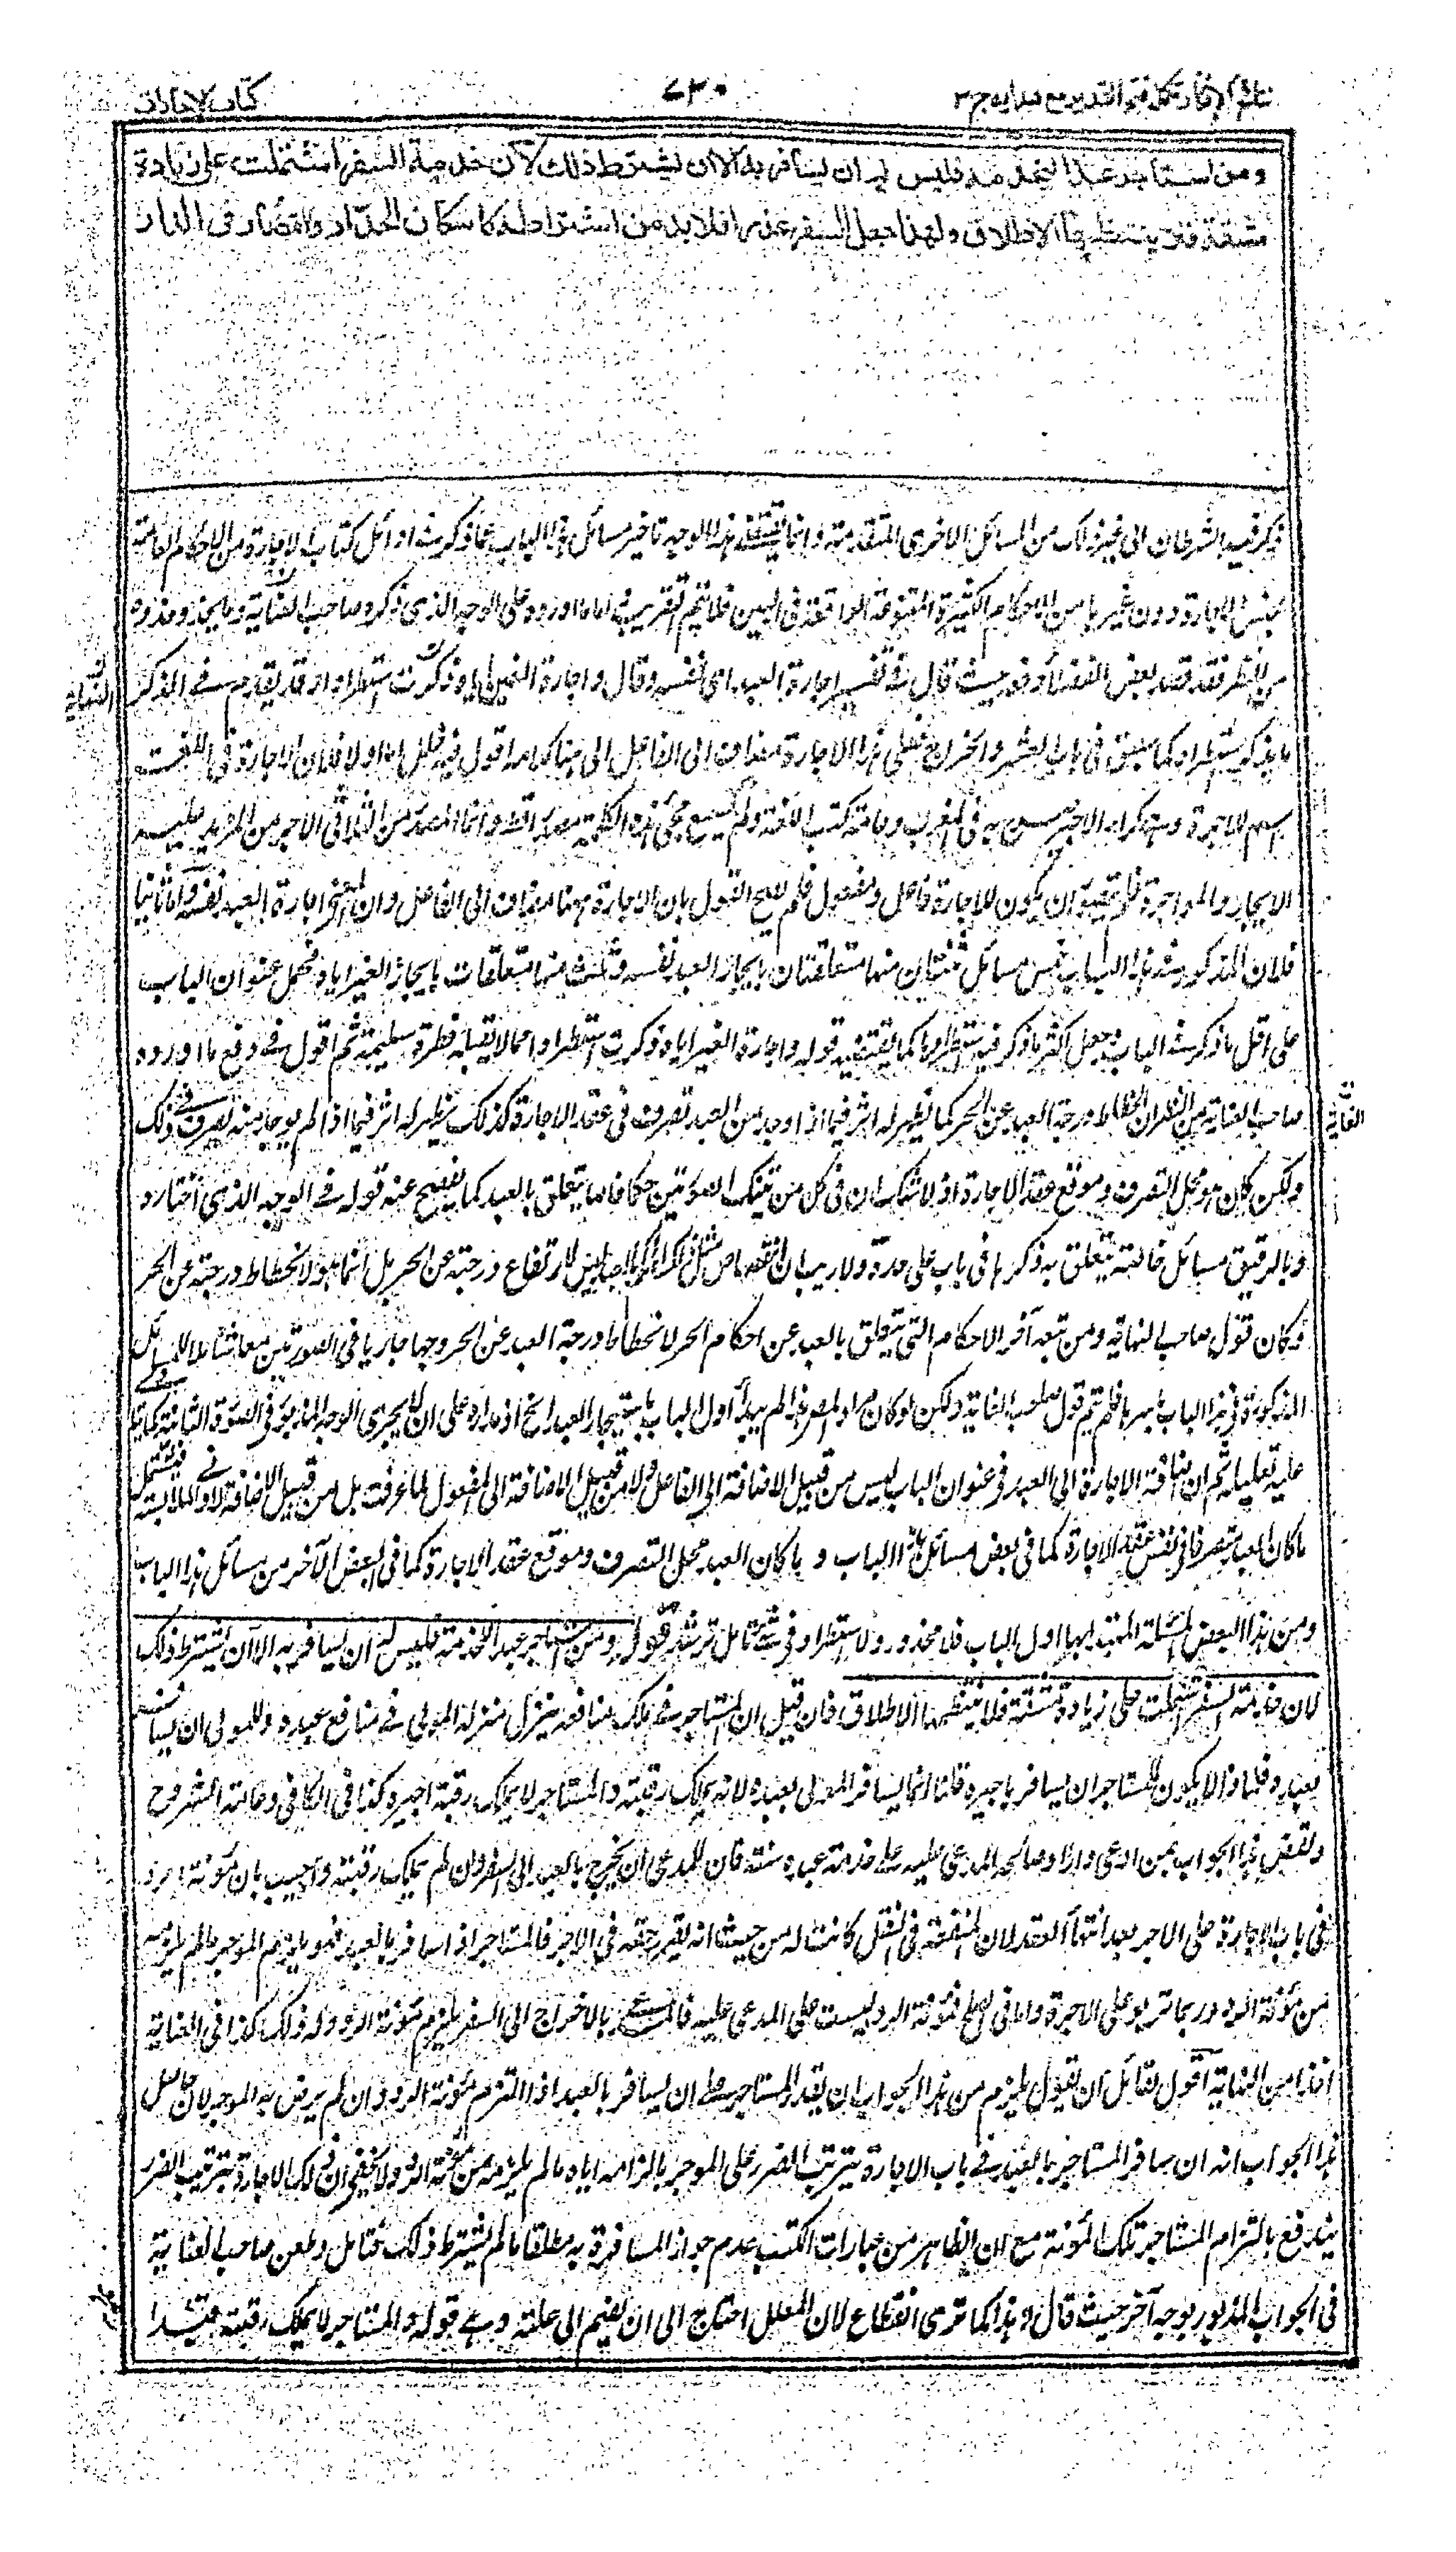 نتائج الافكار تكملة فتح القدير مع هدايه ج ٣
٧٣٠
كتاب الاجارات
ومن استاجر عبدا ليخدمه فليس له ان يسافر به الا ان يشترط ذلك لان خدمة السفر اشتملت على زيادة
مشقة فلا ينتظمها الاطلاق ولهذا جعل السفر عذرا فلا بد من اشتراطه كاسكان الحداد والقصار فى الدار
ذكر فيه الشرطان الى غير ذلك من المسائل الاخرى المتقدمة وانما يقتضى هذا الوجه تاخير مسائل هذا الباب عما ذكر فى اوائل كتاب الاجارة من الاحكام العامة
لجنس الاجارة دون غيرها من الاحكام الكثيرة المتنوعة الواقعة فى البين فلا يتم التقريب اما ما اورده على الوجه الذى ذكره صاحب العناية
من النظر فقد قصد بعض الفضلاء دفعه حيث قال فى تفسير اجارة العبد اى نفسه وقال واجارة الغير اياه ذكرت استطرادا وقد يقدم فى الذكر
ما يذكر استطرادا كما سبق فى باب العشر والخراج فعلى هذا الاجارة مضاف الى الفاعل الى هنا كلامه اقول فيه خلل اما اولا فلان الاجارة فى اللغة
اسم للاجرة وهى كراء الاجير صرح به فى المغرب وعامة كتب اللغة ولم يسمع مجئ هذه الكلمة مصدرا قط وانما المصدر من الثلاثى الاجر ومن المزيد عليه
الايجار والمواجرة فلا يتصور ان يكون للاجارة فاعل ومفعول فلم يصح القول بان الاجارة ههنا مضاف الى الفاعل وان المعنى اجارة العبد نفسه واما ثانيا
فلان المذكور فى هذا الباب خمس مسائل ثنتان منها متعلقتان بايجار العبد نفسه وثلث منها متعلقات بايجار الغير اياه فحمل عنوان الباب
على اقل ما ذكر فى الباب وجعل اكثر ما ذكر فيه استطراديا كما يقتضيه قوله واجارة الغير اياه ذكرت استطرادا مما لا يقبله فطرة سليمة ثم اقول فى دفع ما اورده
صاحب العناية من النظر ان انحطاط درجة العبد عن الحر كما يظهر له اثر فيما اذا وجد من العبد تصرف فى عقد الاجارة كذلك يظهر له اثر فيما اذا لم يوجد منه تصرف فى ذلك
ولكن كان هو محل التصرف وموقع عقد الاجارة اذ لا شك ان فى كل من تينك الصورتين حكما خاصا يتعلق بالعبد كما يفصح عنه قوله فى الوجه الذى اختاره
وبالرقيق مسائل خاصة يتعلق به ذكرها فى باب على حدة ولا ريب ان اختصاص مثل ذلك ليس لارتفاع درجته عن الحر بل انما هو لانحطاط درجته عن الحر
وكان قول صاحب النهاية ومن تبعه آخر الاحكام التى يتعلق بالعبد عن احكام الحر لانحطاط درجة العبد عن الحر وجها جاريا فى الصورتين معا شاملا للمسائل
المذكورة فى هذا الباب باسرها فلم يتم قول صاحب العناية ولكن لو كان مراد المصنف هذا لم يبدأ اول الباب باستيجار العبد الخ اذ مداره على ان لا يجرى الوجه المذبور فى الصورة الثانية كما يدل
عليه تعليله ثم ان اضافة الاجارة الى العبد فى عنوان الباب ليس من قبيل الاضافة الى الفاعل ولا من قبيل الاضافة الى المفعول لما عرفت بل من قبيل الاضافة لادنى الملابسة فيشتمل
ما كان العبد متصرفا فى نفس عقد الاجارة كما فى بعض مسائل هذا الباب و ما كان العبد محل التصرف وموقع عقد الاجارة كما فى البعض الآخر من مسائل هذا الباب
ومن هذا البعض المسئلة المبتدأ بها اول الباب فلا محذور ولا استطراد فى شئ تامل ترشد قوله ومن استاجر عبدا للخدمة فليس له ان يسافر به الا ان يشترط ذلك
لان خدمة السفر اشتملت على زيادة مشقة فلا ينتظمها الاطلاق فان قيل ان المستاجر فى ملك منافعه يتنزل منزلة المولى فى منافع عبده وللمولى ان يسافر
بعبده فلماذا لا يكون للمستاجر ان يسافر باجيره قلنا انما يسافر المولى بعبده لانه يملك رقبته والمستاجر لا يملك رقبة اجيره كذا فى الكافى وعامة الشروح
ونقض هذا الجواب بمن ادعى دارا وصالحه المدعى عليه على خدمة عبده سنة فان للمدعى ان يخرج بالعبد الى السفر وان لم يملك رقبته واجيب بان مؤنة الرد
فى باب الاجارة على الاجر بعد انتهاء العقد لان المنفعة فى النقل كانت له من حيث انه تقرر حقه فى الاجر فالمستاجر اذا سافر بالعبد فهو يلزم الموجر ما لم يلزمه
من مؤنة الرد وربما تربو على الاجرة واما فى الصلح فمؤنة الرد ليست على المدعى عليه فالمدعى بالاخراج الى السفر يلتزم مؤنة الرد وله ذلك كذا فى العناية
اخذا من النهاية اقول لقائل ان يقول يلزم من هذا الجواب ان يقدر المستاجر على ان يسافر بالعبد اذا التزم مؤنة الرد وان لم يرض به الموجر لان حاصل
هذا الجواب انه ان سافر المستاجر بالعبد فى باب الاجارة يترتب الضرر على الموجر بالزامه اياه ما لم يلزمه من مؤنة الرد ولا يخفى ان فى تلك الاجارة يترتب الضرر
يندفع بالتزام المستاجر تلك المؤنة مع ان الظاهر من عبارات الكتب عدم جواز المسافرة به مطلقا ما لم يشترط ذلك فتامل وطعن صاحب العناية
فى الجواب المذبور بوجه آخر حيث قال وهذا كما ترى انقطاع لان المعلل احتاج الى ان يضم الى علته وهى قوله والمستاجر لا يملك رقبته قيدا